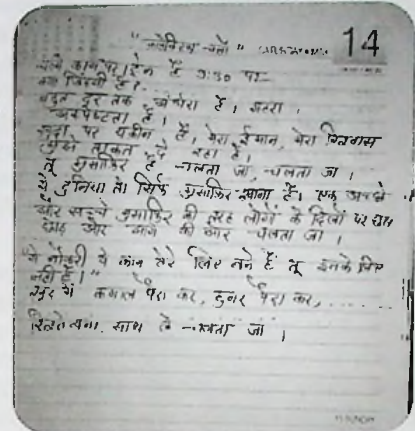 14
काम पर। ट्रेन है 9:30 पर
क्या जिंदगी है?
बहुत दूर तक अंधेरा है, खतरा।
अस्पष्टता है।
खुदा पर यकीन है, मेरा ईमान, मेरा विश्वास
मुझे ताकत दे रहा है।
तू मुसाफिर है चलता जा, चलता जा।
ये दुनिया तो सिर्फ मुसाफिर खाना है। एक अच्छे
और सच्चे मुसाफिर की तरह लोगों के दिलों पर छाप
छोड़ और आगे की ओर चलता जा।
"ये नौकरी ये काम तेरे लिए बने हैं तू इनके लिए
नहीं है।"
खुद में कमाल पैदा कर, हुनर पैदा कर,......
साथ ले चलता जा।